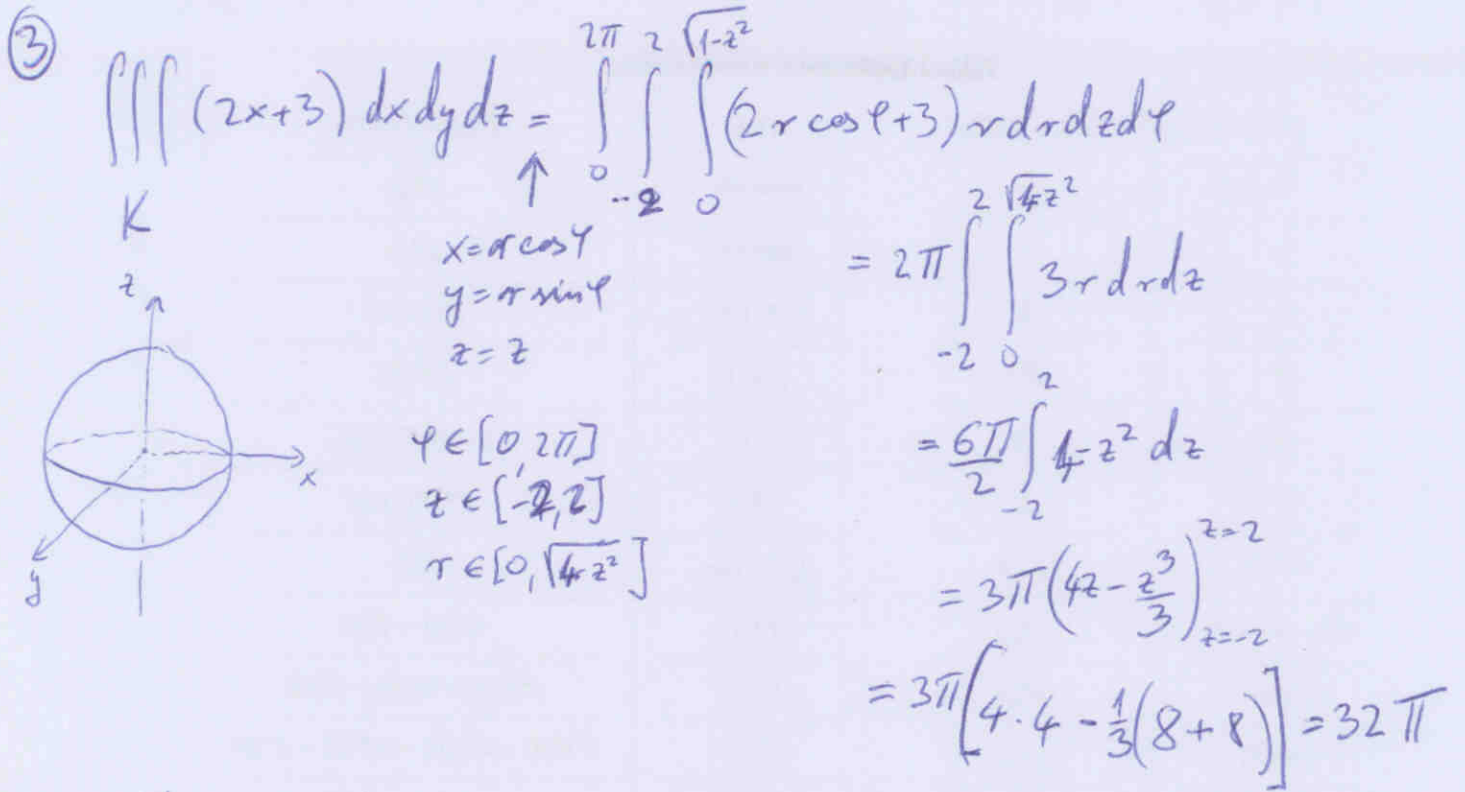 ③
∫∫∫_K (2x+3) dx dy dz = ∫_0^{2π} ∫_{-2}^{2} ∫_0^{√(1-z²)} (2r cos φ+3) r dr dz dφ
↑
x = r cos φ
y = r sin φ
z = z
φ ∈ [0, 2π]
z ∈ [-2, 2]
r ∈ [0, √(4-z²)]
z
x
y
= 2π ∫_{-2}^{2} ∫_0^{√(4-z²)} 3r dr dz
= 6π/2 ∫_{-2}^{2} 4-z² dz
= 3π (4z - z³/3)_{z=-2}^{z=2}
= 3π [4·4 - 1/3 (8+8)] = 32π